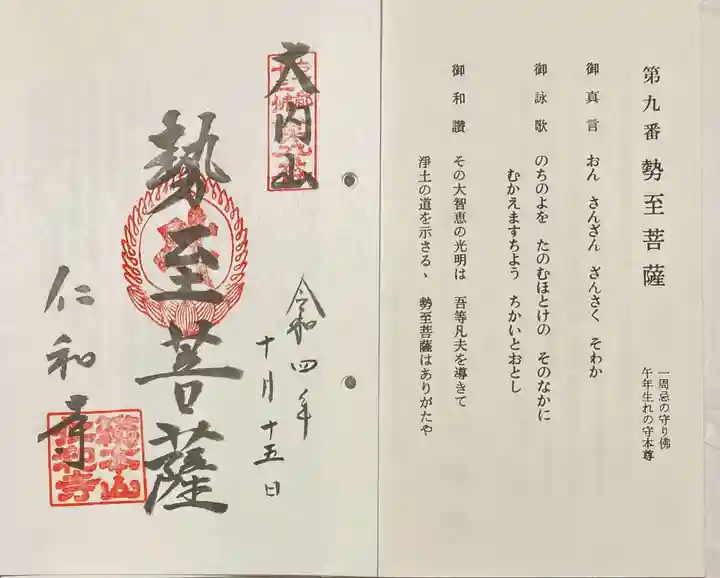 第九番 勢至菩薩
一周忌の守り佛
午年生れの守本尊
御真言 おん さんざん ざんさく そわか
御詠歌 のちのよを たのむほとけの そのなかに
むかえますちよう ちかいとおとし
御和讃 その大智恵の光明は 吾等凡夫を導きて
淨土の道を示さるゝ 勢至菩薩はありがたや
大内山
令和四年
十月十五日
勢至菩薩
仁和寺